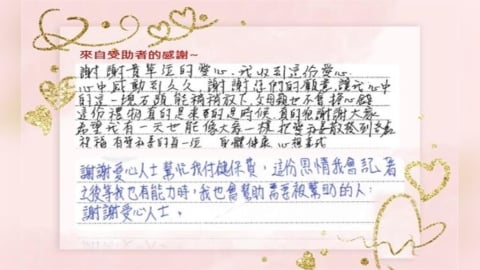 來自受助者的感謝~
謝謝貴單位的愛心、我收到這份愛心
心中感動到久久,謝謝你們的願意,讓我心中
的這一塊石頭能稍稍放下、父母親也不會擔心
這份禮物真的是來的是時候,真的感謝謝大家
希望我有一天也能像大家一樣,把愛
祝福 每一位 身體健康 心想事成
謝謝愛心人士幫忙我付健保費,這份恩情我會記著
之後等我也有能力時,我也會幫助需要被幫助的人,
謝謝愛心人士。